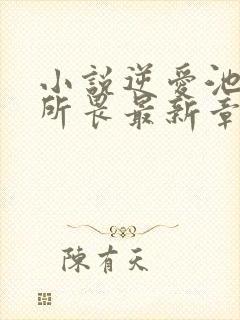 小說逆愛池
所畏最新章
陳有天